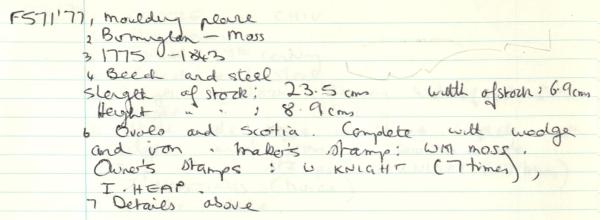 F571'77, moulding plane
2 Birmingham - Moss
3 1775 - 1843
4 Beech and steel
5 length of stock: 23.5 cms width of stock: 6.9 cms
Height " " : 8.9 cms
6 Ovolo and scotia. Complete with wedge
and iron. Maker's stamp: WM MOSS.
Owner's stamps: W KNIGHT (7 times),
I. HEAP.
7 Details above